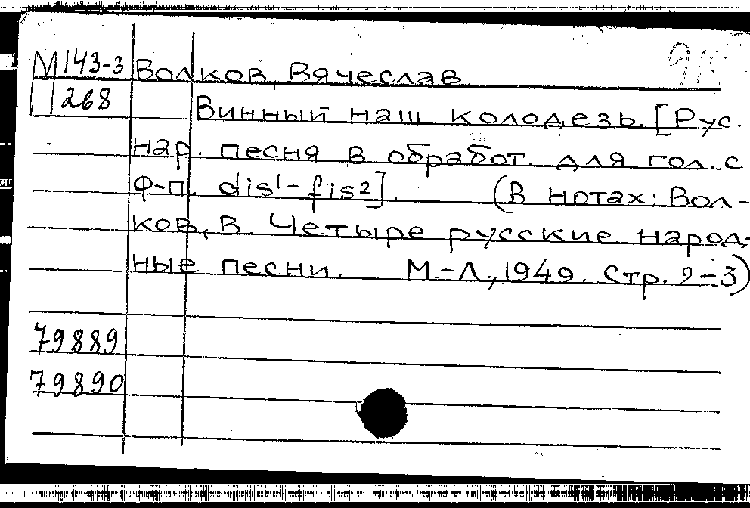 М 143-3 Волков, Вячеслав
268 Винный наш колодезь. [Рус.
нар. песня в обработ. для гол. с
ф-п. dis¹-fis²]. (В нотах: Вол-
ков, В. Четыре русские народ-
ные песни. М-Л, 1949. Стр. 2-3)
79889
79890